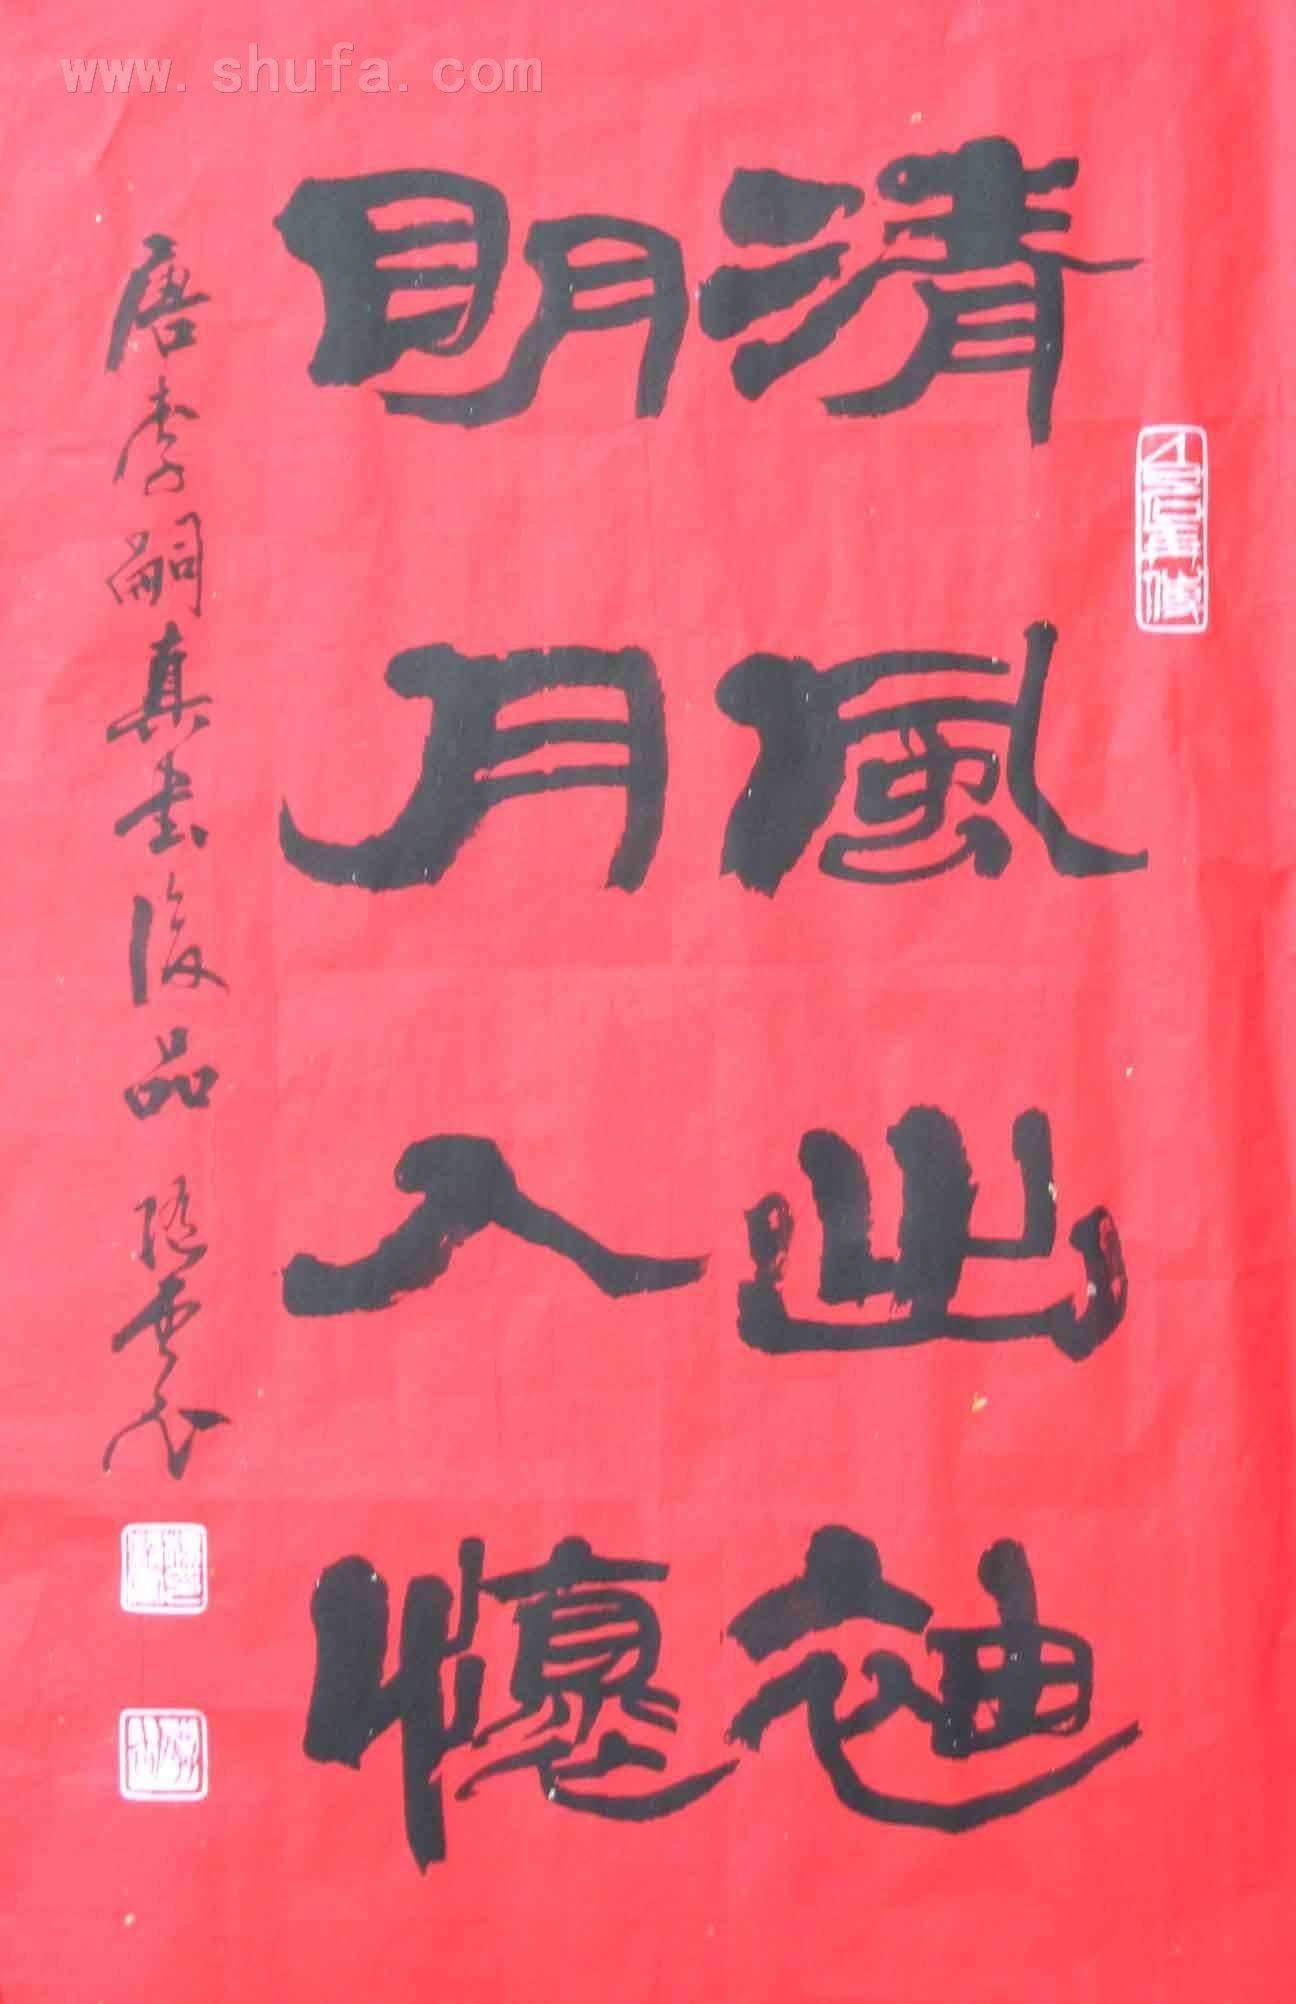 www.shufa.com
清風出袖
明月入懷
唐李嗣真書後品